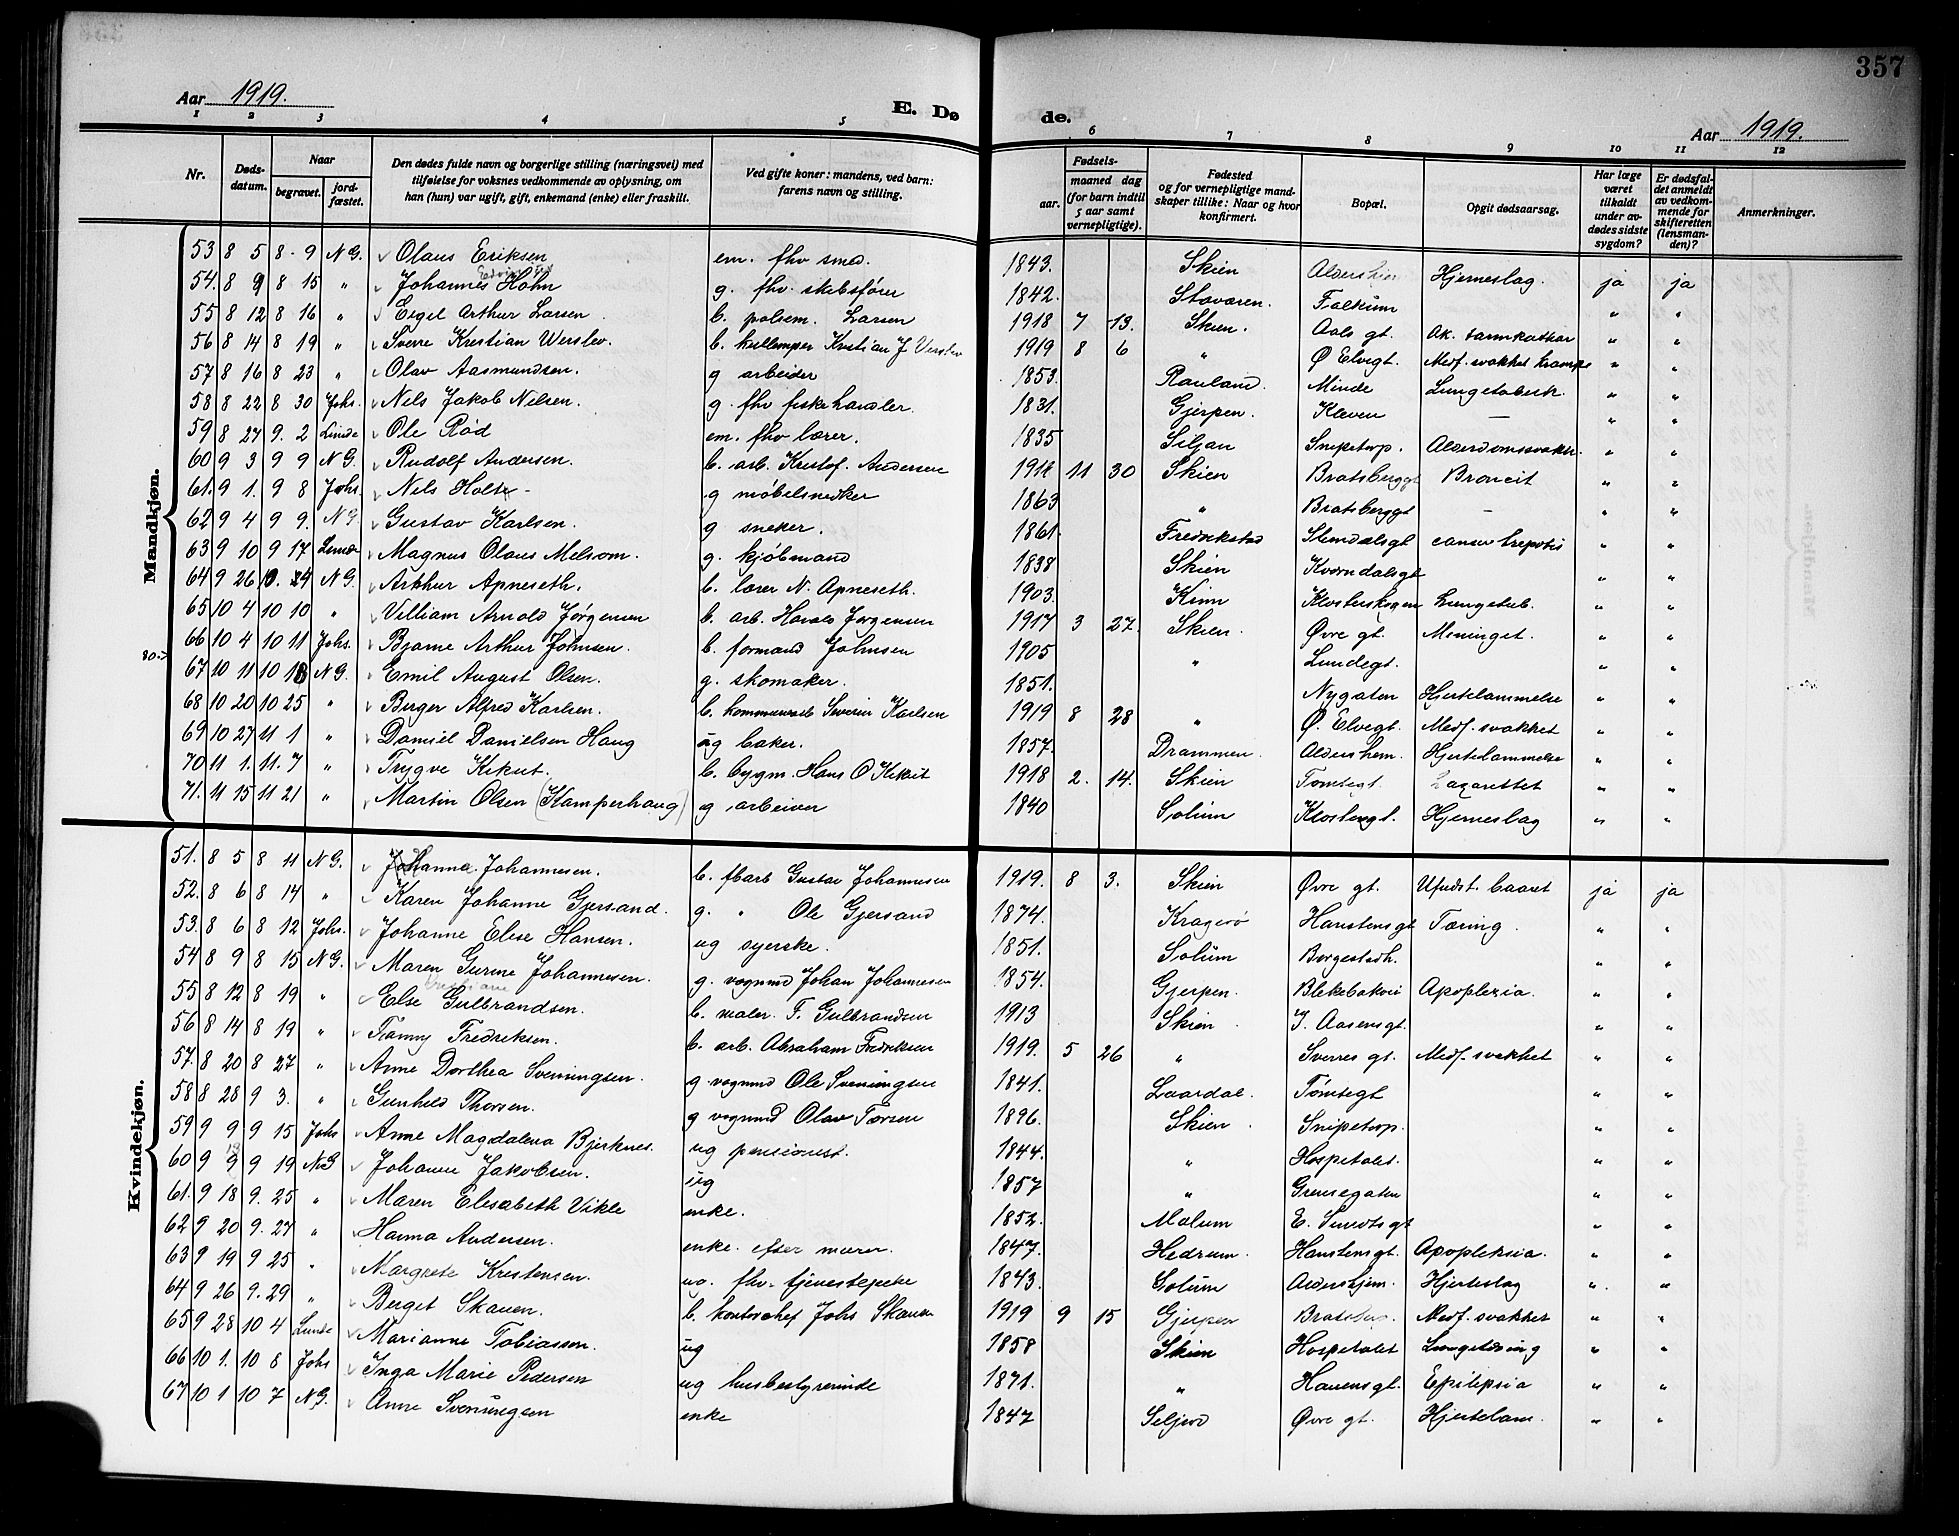 357
Aar 1919.
E. Dø de.
Aar 1919.
1 2 3 4 5 6 7 8 9 10 11 12
Nr. Døds-datum. Naar begravet. jord-fæstet. Den dødes fulde navn og borgerlige stilling (næringsvei) med tilføielse for voksnes vedkommende av oplysning, om han (hun) var ugift, gift, enkemand (enke) eller fraskilt. Ved gifte koner: mandens, ved barn: farens navn og stilling. Fødsels- aar. maaned dag (for barn indtil 5 aar samt vernepligtige). Fødested og for vernepligtige mandskaper tillike: Naar og hvor konfirmert. Bopæl. Opgit dødsaarsag. Har læge været tilkaldt under avdødes sidste sygdom? Er dødsfaldet anmeldt av vedkommende for skifteretten (lensmanden)? Anmerkninger.
Mandkjøn.
53 8 5 8 9 N G. Olaus Eriksen em. fhv smed. 1843. Skien Hjerneslag. ja ja
54. 8 9 8 15 " Johannes Höhn g. fhv. skibsfører 1842. Staværen. Falkum " "
55 8 12 8 16 " Eigel Arthur Larsen b. polsem. Larsen 1918 7 13. Skien. Aals gt. Ak. tarmkatar " "
56 8 14 8 19 " Sverre Kristian Werslev b. Kristian J Verslev 1919 8 6 " Ø Elvegt. Medf. svakhet krampe " "
57 8 16 8 23 " Olav Aasmundsen. g arbeider 1853. Rauland. Minde " "
58 8 22 8 30 Johs. Nels Jakob Nelsen. g. fhv fiskehandler. 1831. Gjerpen. Kleven — " "
59 8 27 9. 2 Linde Ole Rød em. fhv lærer. 1835 Siljan Snipetorp. Alderdomssvakh. " "
60 9 3 9 9 N G. Rudolf Andersen. b. arb. Kristof. Andersen 11 30 Skien Bratsberggt Broncit " "
61. 9 1. 9 8 Johs. Nels Holte g møbelsnedker 1863 " Bratsberggt — " "
62 9 4 9 9. N G. Gustav Karlsen. g sneker. 1861. Fredrikstad " "
63 9 10 9 17 Linde Magnus Olaus Melsom. g. kjøbmand 1838 Skien Kværndalsgt " "
64 9 26 N G. Arthur Apneseth. b. lærer N. Apneseth. 1903. Kinn Klosterskogen Lungetub. " "
65 10 4 10 10 " Villiam Arnold Jørgensen b. arb. Harald Jørgensen 1917 3 27. Skien. Øvre gt. Meninget. " "
66 10 4 10 11 Johs. Bjarne Arthur Johnsen. b. formand Johnsen 1905 " Lundegt. " "
67 10 11 10 18 N G. Emil August Olsen. g. skomaker. 1851. Nygaten Hjertelammelse " "
68 10 20 10 25 " Berger Alfred Karlsen. b. Severin Karlsen 1919 8 28 " Ø. Elvegt. Medf. svakhet " "
69 10 27 11 1 " Daniel Danielsen Haug ug baker. 1857. Drammen. Aldershem. Hjertelammelse " "
70 11 1. 11. 7 " Trygve Kikut. b. bygm. Hans O Kikut 1918 2. 14. Skien Tomtegt. Lazarettet " "
71. 11 15 11 21 " Martin Olsen (Kamperhaug) g arbeider 1840 Solum Klostergt. Hjerneslag " "
Kvindekjøn.
51. 8 5 8 11 N G. Johanne Johannesen. b. fbarb Gustav Johannesen 1919. 8 3. Skien Øvre gt. Ufuldst. baaret ja ja
52. 8 6 8 14 " Karen Johanne Gjersand. g. " Ole Gjersand 1874. Kragerø Hanstensgt Tæring. " "
53. 8 6 8 12 Johs. Johanne Elise Hansen. ug syerske. 1851. Solum Borgestadh. " "
54 8 9 8 15 N G. Maren Gurine Johannesen. g. vognmd Johan Johannesen 1854. Gjerpen. Blekebakken Apoplexia. " "
55 8 12 8 19 " Else Gulbrandsen. b. maler. F. Gulbrandsen 1913 Skien. J. Aasensgt. " "
56 8 14 8 19 " Fanny Fredriksen. b. arb. Abraham Fredriksen 1919. 5 26 " Sverres gt. Medf. svakhet " "
57. 8 20 8 27 " Anne Dorthea Sveningsen. g vognmd Ole Sveningsen 1841. Laardal. Tømtegt " "
58 8 28 9 3. " Gunhild Thorsen. g vognmd Olav Torsen 1896. Skien. Snipetorp. " "
59 9 9 9 15 Johs Anne Magdalena Bjerknes. ug pensionist. 1844. " Hospetalet. " "
60 9 9 9 19 N G Johanne Jakobsen. ug 1857 " Grensegaten " "
61. 9 18 9. 25 " Maren Elisabeth Vikle enke. 1852. Molum E. Sundtsgt " "
62 9 20 9. 27 " Hanna Andersen. enke. efter murer. 1847. Hedrum. Hanstensgt. Apopleksia. " "
63 9 19 9 25 " Margrete Kristensen. ug. fhv. tjenestepike 1843. Solum Aldershjem. Hjerteslag " "
64 9 26 9. 29 " Berget Skauen. b. kontorchef Johs Skauen 1919 9 15 Gjerpen Medf. svakhet " "
65 9 28 10 4 Linde Marianne Tobiassen. ug 1858 Skien Hospetalet Lungetæring " "
66 10 1. 10 8 Johs Inga Marie Pedersen ug husbestyrerinde 1871. " Hauensgt. Epilepsia " "
67 10 1 10 7 N G. Anne Sveningsen enke 1847 Seljord Øvre gt. Hjertelam. " "